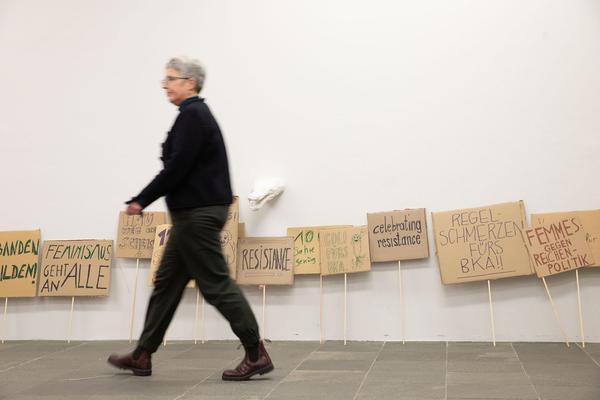 BANDEN
ILDEM
FEMINISMUS
GEHT
AN ALLE
RESISTANCE
10
Jahre
celebrating
resistance
REGEL-
SCHMERZEN
FÜRS
BKA!!
FEMMES
GEGEN
REICHEN-
POLITIK